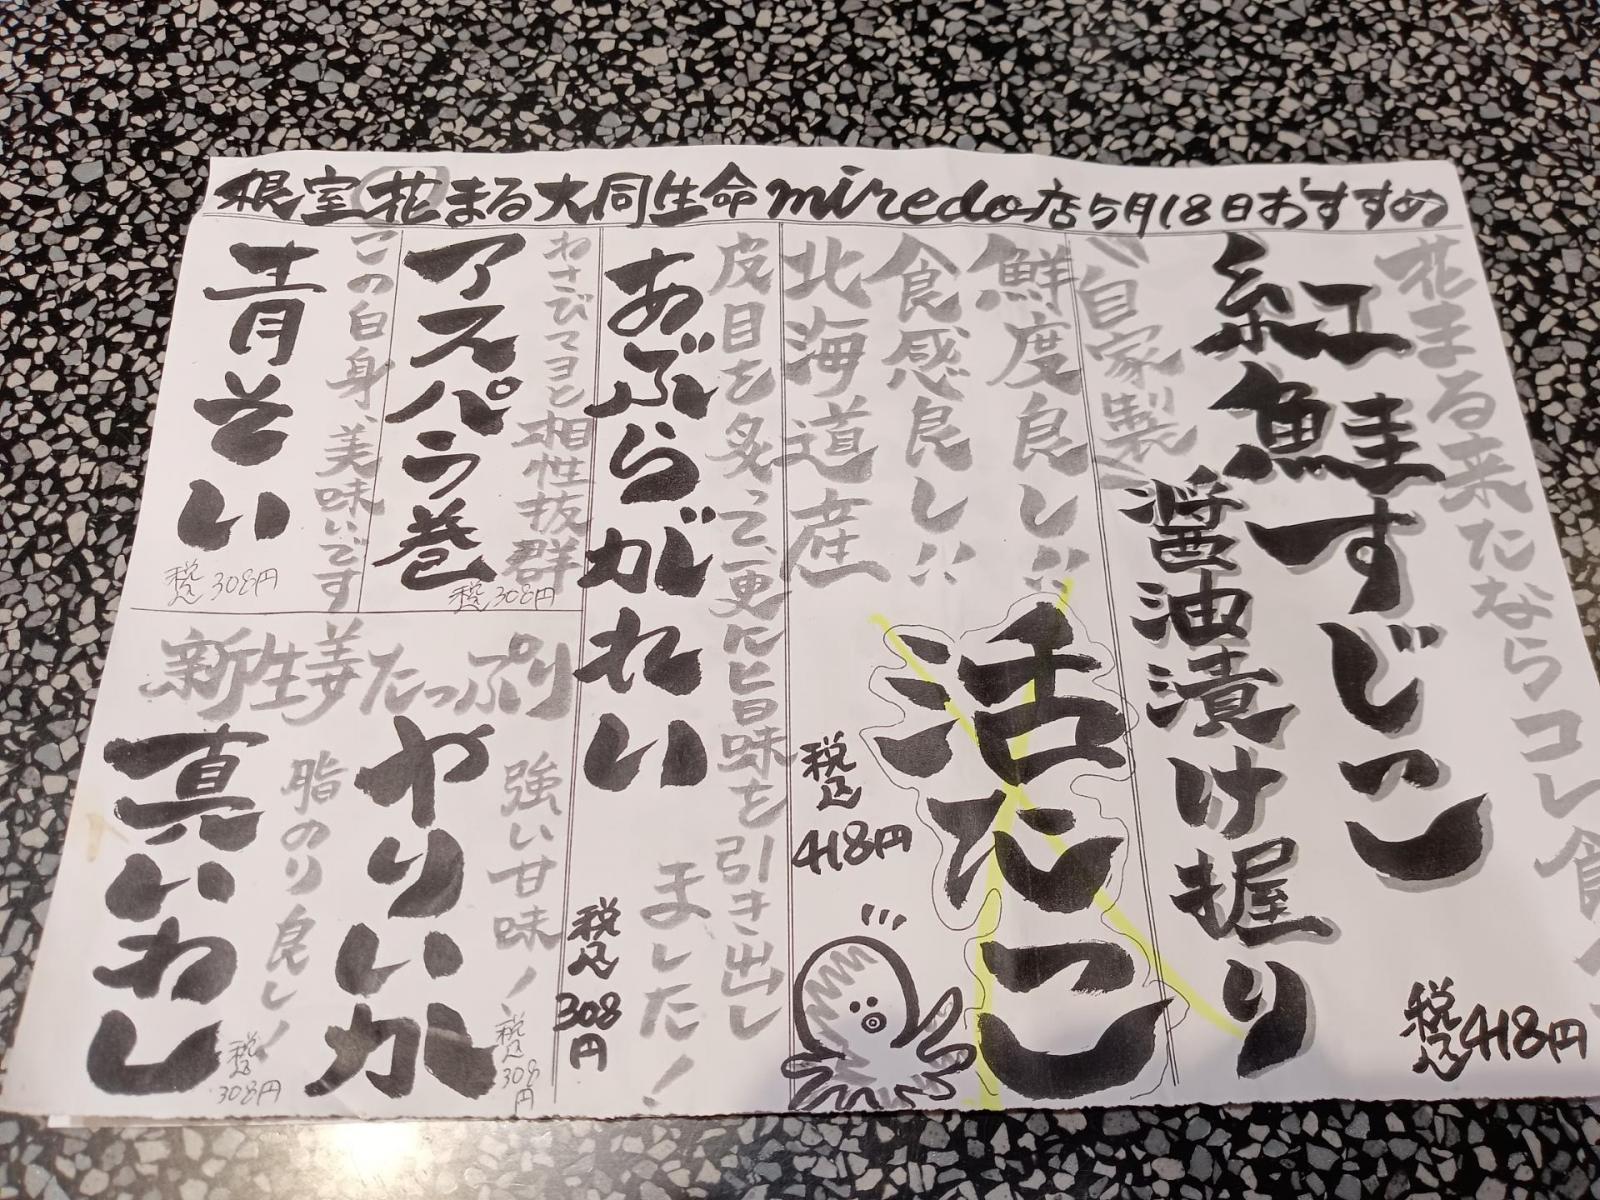 根室花まる大同生命miredo店5月18日おすすめ
花まる来たならコレ食
紅鮭すじこ
醤油漬け握り
自家製
税込418円
鮮度良し!!
食感良し!!
北海道産
活たこ
税込
418円
皮目を炙って、更に旨味を引き出し
ました!
あぶらがれい
税込308円
わさびマヨと相性抜群
アスパラ巻
税込308円
この白身、美味いです
青そい
税込308円
新生姜たっぷり
強い甘味!
やりいか
税込308円
脂のり良し!
真いわし
税込308円